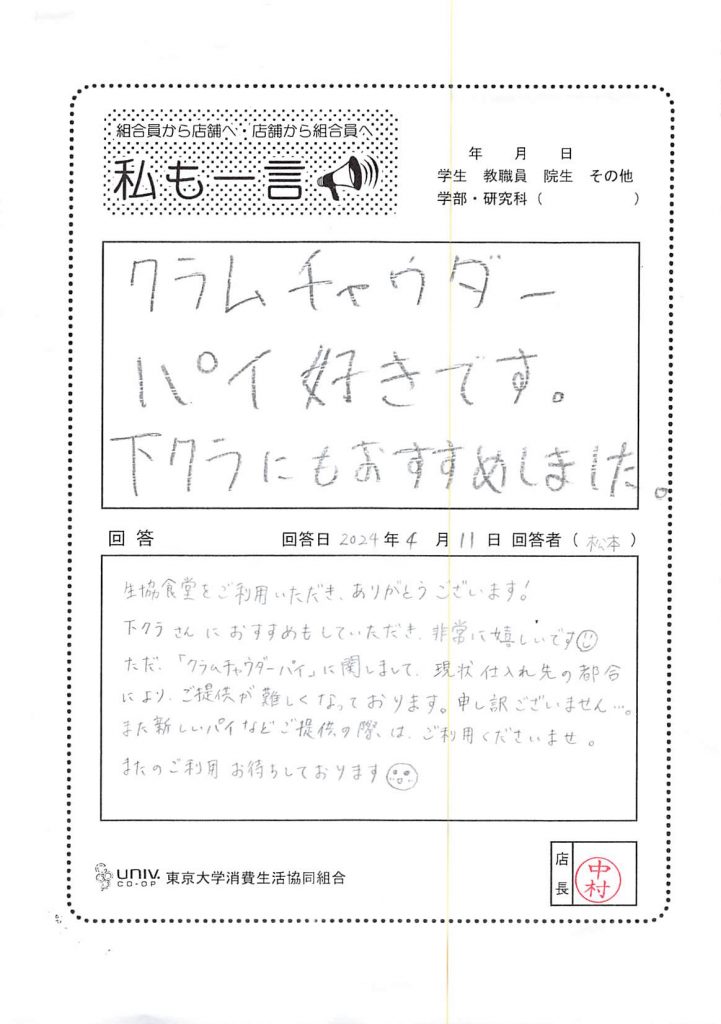 組合員から店舗へ・店舗から組合員へ
私も一言
年 月 日
学生 教職員 院生 その他
学部・研究科（ ）
クラムチャウダー
パイ好きです。
下クラにもおすすめしました。
回答 回答日 2024年4月11日 回答者（松本）
生協食堂をご利用いただき、ありがとうございます！
下クラさんにおすすめもしていただき、非常に嬉しいです☺
ただ、「クラムチャウダーパイ」に関しまして、現状仕入れ先の都合
により、ご提供が難しくなっております。申し訳ございません…。
また新しいパイなどご提供の際、は、ご利用くださいませ。
またのご利用お待ちしております☺
UNIV. CO-OP 東京大学消費生活協同組合
店長 中村